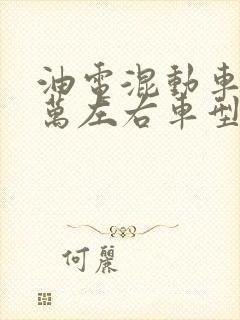 油電混動車
萬左右車型
何麗